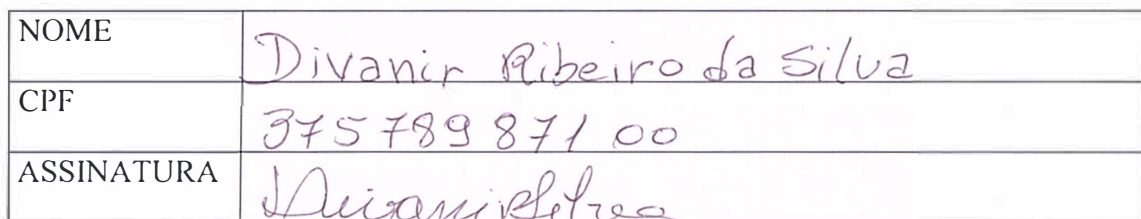 NOME Divanir Ribeiro da Silva
CPF 375 789 871 00
ASSINATURA